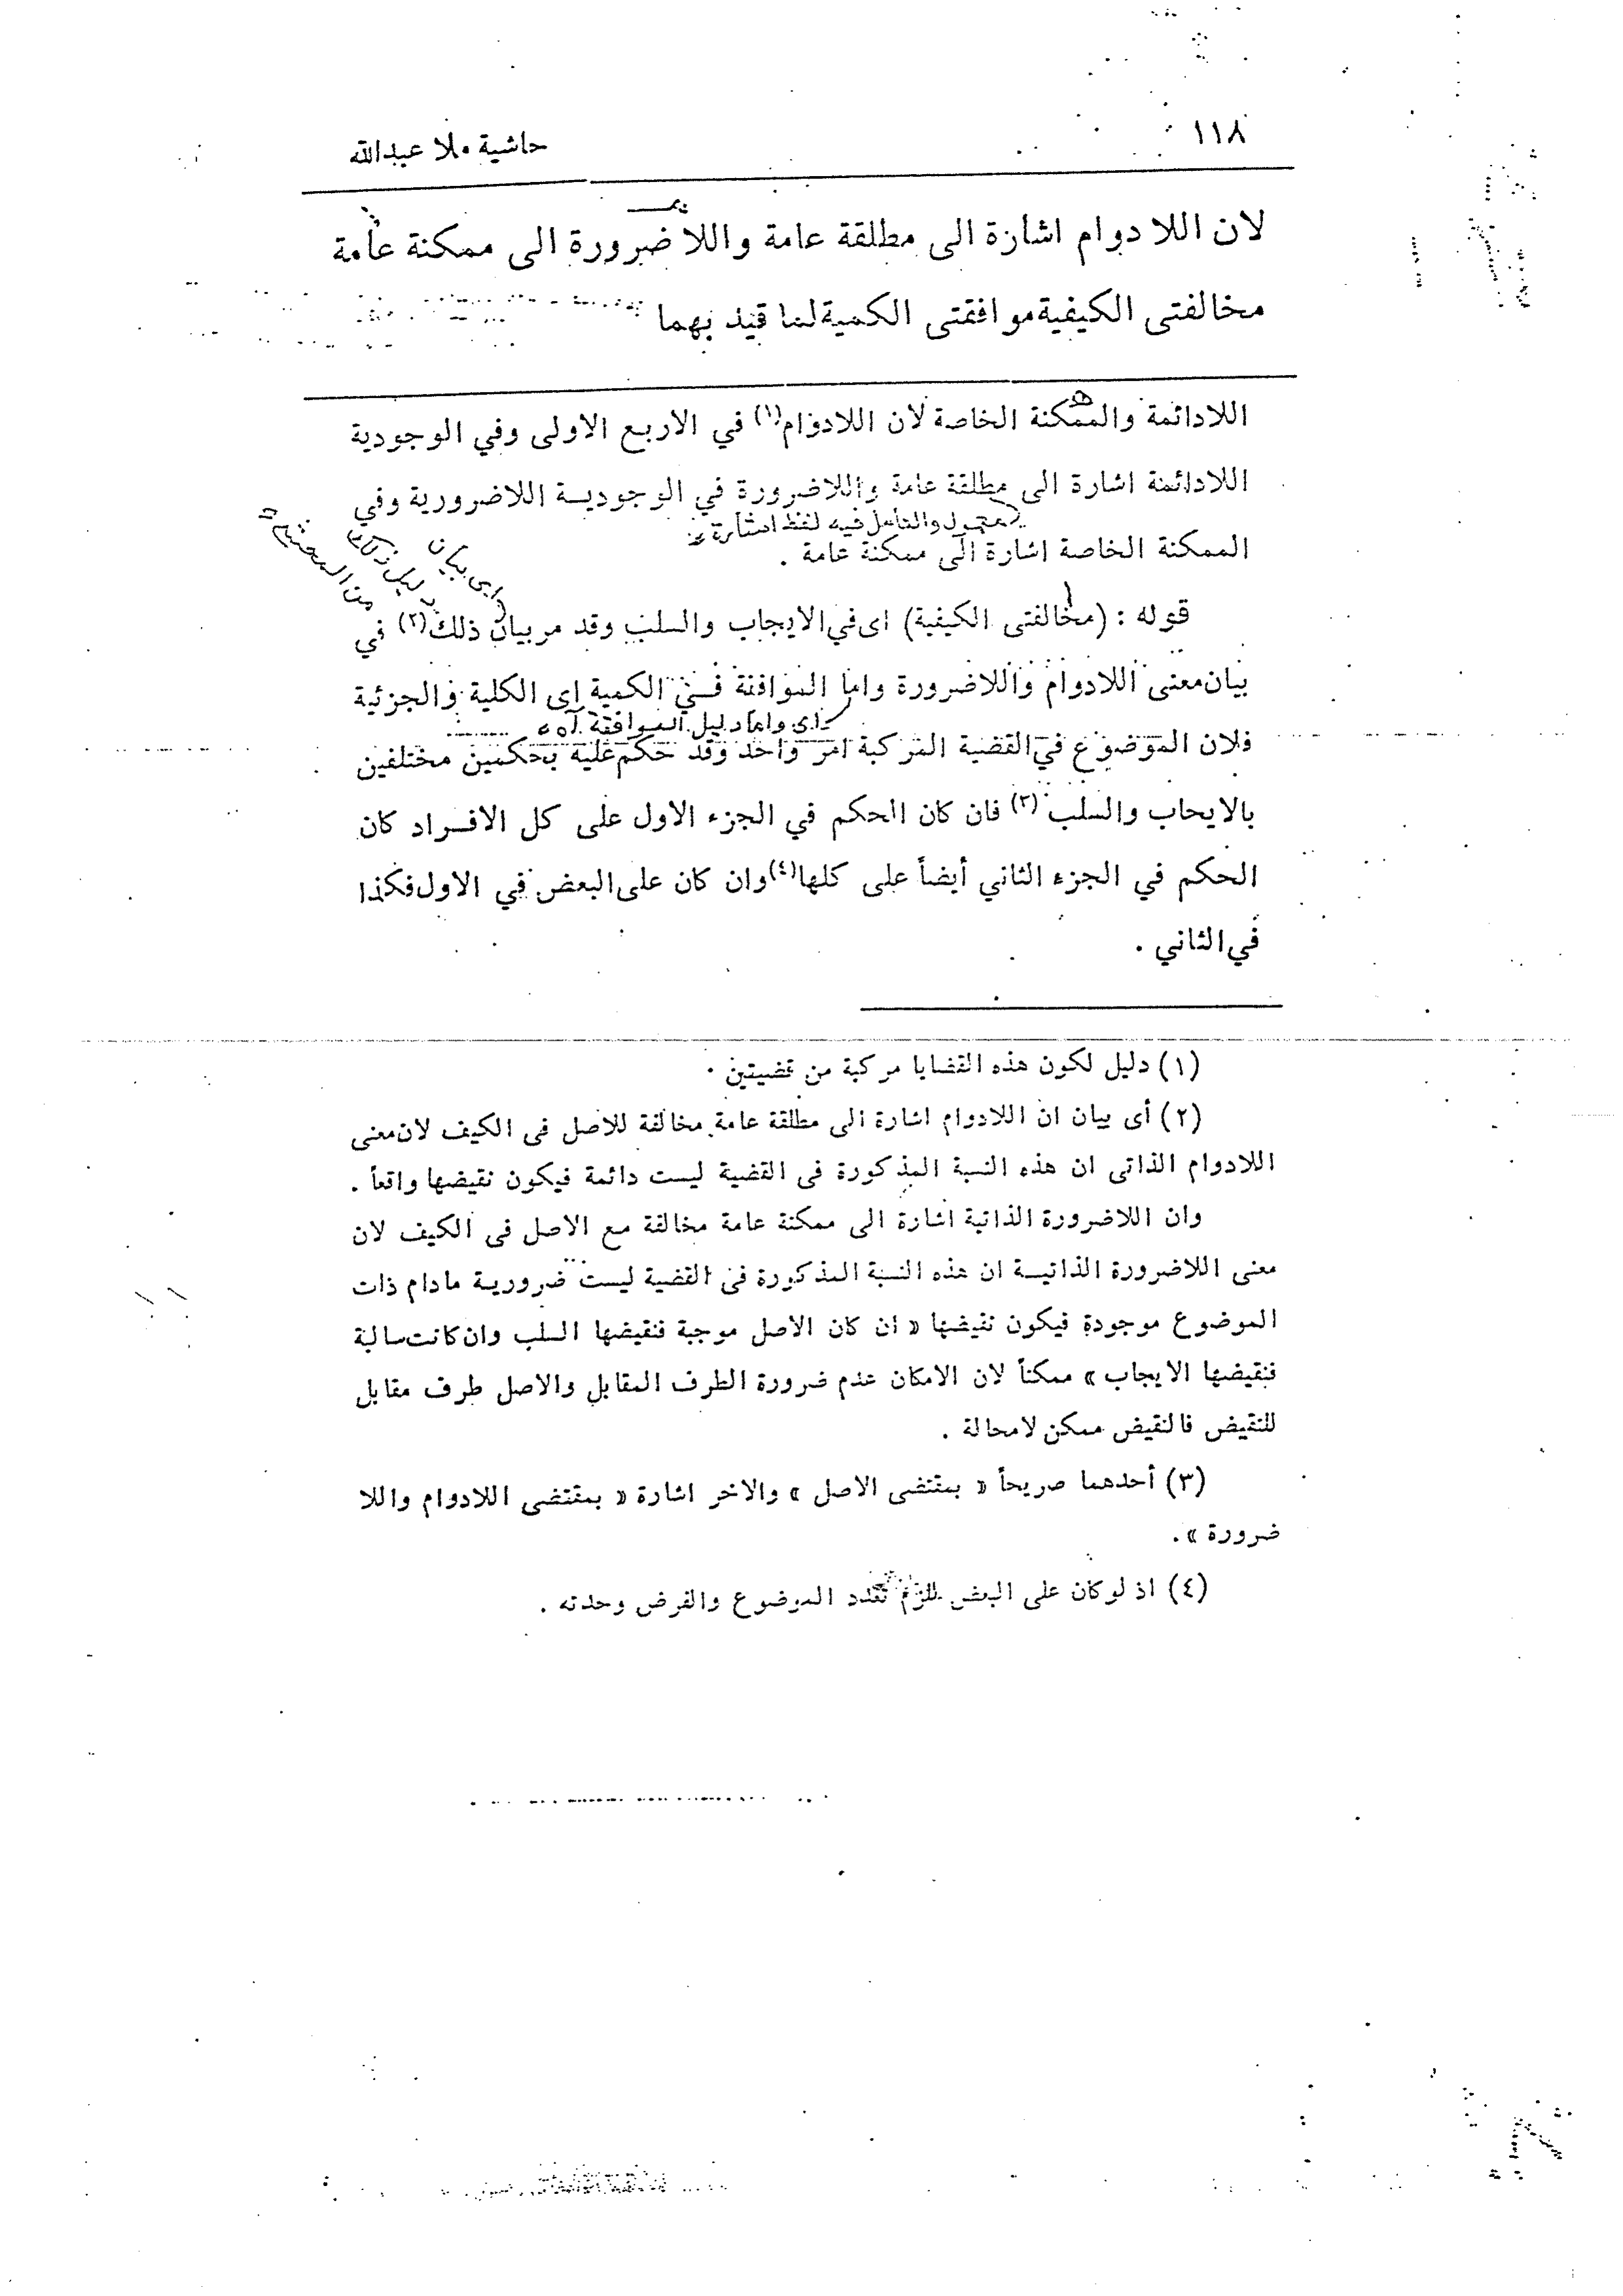 ١١٨
حاشية ملا عبدالله
لان اللا دوام اشارة الى مطلقة عامة واللا ضرورة الى ممكنة عامة
مخالفتى الكيفية موافقتى الكمية لما قيد بهما
اللادائمة والممكنة الخاصة لان اللادوام(١) في الاربع الاولى وفي الوجودية
اللادائمة اشارة الى مطلقة عامة واللاضرورة في الوجوديـة اللاضرورية وفي
معمول والعامل فيه لفظ اشارة
الممكنة الخاصة اشارة الى ممكنة عامة .
اى بيان
دليل
من المحشى
قوله : (مخالفتى الكيفية) اى في الايجاب والسلب وقد مر بيان ذلك(٢) في
بيان معنى اللادوام واللاضرورة واما الموافقة فـي الكمية اى الكلية والجزئية
اى واما دليل الموافقة آه
فلان الموضوع في القضية المركبة امر واحد وقد حكم عليه بحكمين مختلفين
بالايحاب والسلب (٣) فان كان الحكم في الجزء الاول على كل الافـراد كان
الحكم في الجزء الثاني أيضاً على كلها(٤) وان كان على البعض في الاول فكذا
في الثاني .
(١) دليل لكون هذه القضايا مركبة من قضيتين .
(٢) أى بيان ان اللادوام اشارة الى مطلقة عامة مخالفة للاصل فى الكيف لان معنى
اللادوام الذاتى ان هذه النسبة المذكورة فى القضية ليست دائمة فيكون نقيضها واقعاً .
وان اللاضرورة الذاتية اشارة الى ممكنة عامة مخالفة مع الاصل فى الكيف لان
معنى اللاضرورة الذاتيـة ان هذه النسبة المذكورة فى القضية ليست ضروريـة مادام ذات
الموضوع موجودة فيكون نقيضها « ان كان الاصل موجبة فنقيضها السلب وان كانت سالبة
فنقيضها الايجاب » ممكناً لان الامكان عدم ضرورة الطرف المقابل والاصل طرف مقابل
للنقيض فالنقيض ممكن لامحالة .
(٣) أحدهما صريحاً « بمقتضى الاصل » والاخر اشارة « بمقتضى اللادوام واللا
ضرورة ».
(٤) اذ لوكان على البعض للزم تعدد الموضوع والفرض وحدته .